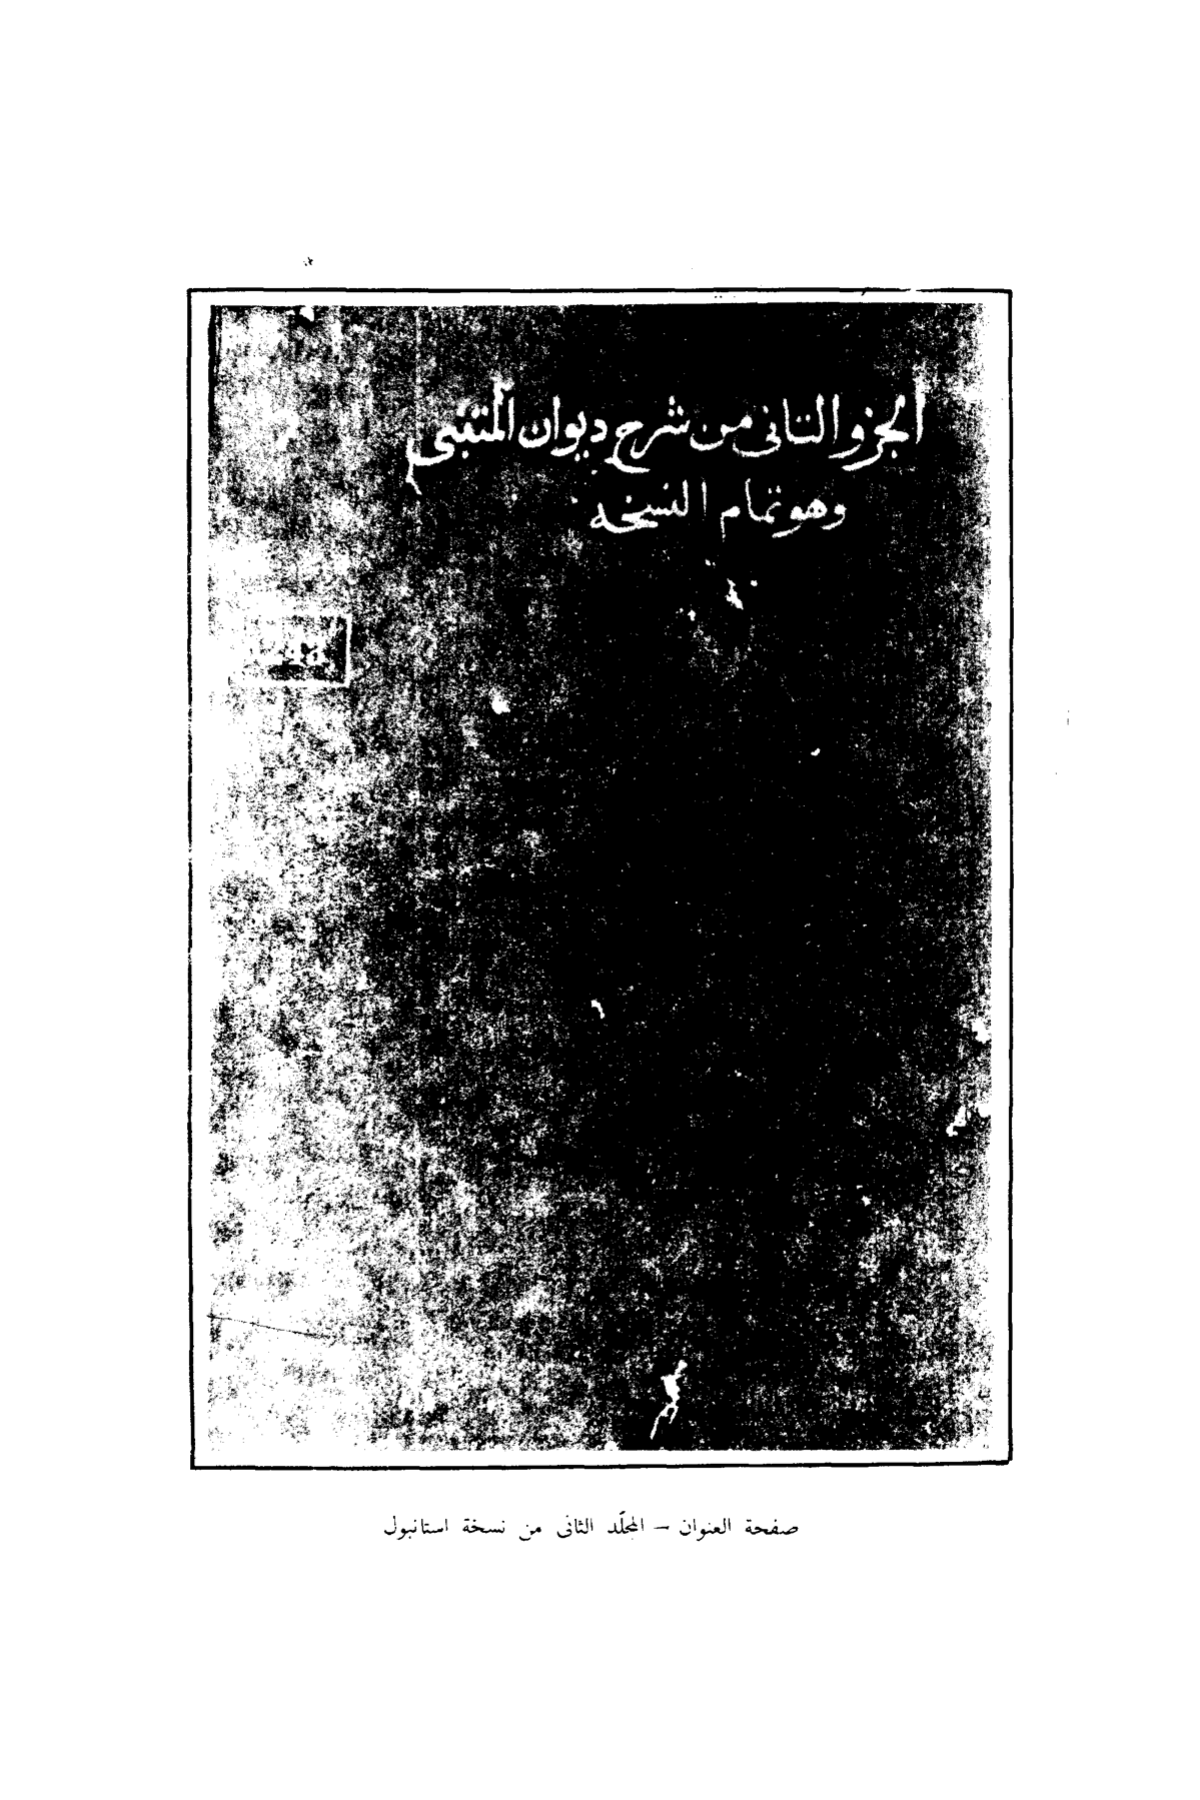 الجزو الثانى من شرح ديوان المتنبى
وهو تمام النسخه
صفحة العنوان – المجلّد الثانى من نسخة استانبول